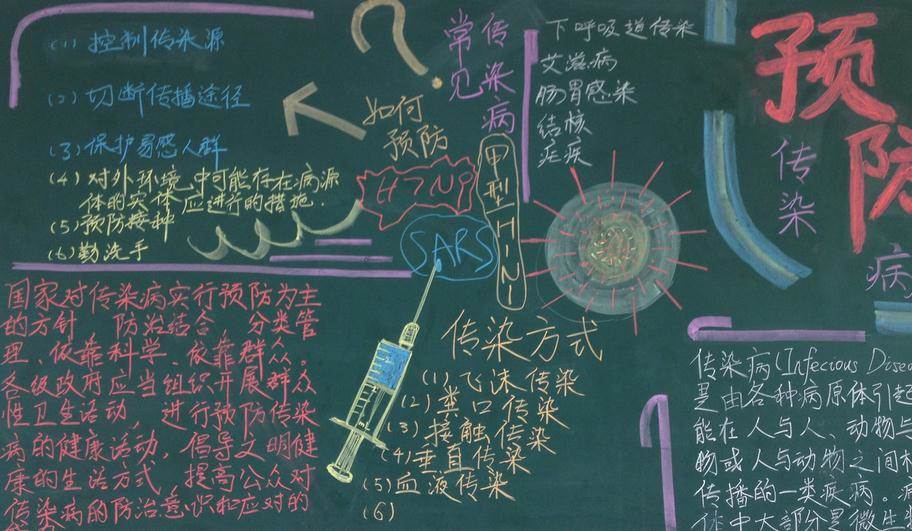 (1) 控制传染源
(2) 切断传播途径
(3) 保护易感人群
(4) 对外环境中可能存在病源
体的实体应进行的措施.
(5) 预防接种
(6) 勤洗手
?
如何
预防
常见
传染病
下呼吸道传染
艾滋病
肠胃感染
结核
疟疾
预防
传染
病
H7N9
甲型H1N1
SARS
国家对传染病实行预防为主
的方针 防治结合,分类管
理、依靠科学、依靠群众。
各级政府应当组织开展群众
性卫生活动,进行预防传染
病的健康活动,倡导文明健
康的生活方式,提高公众对
传染病的防治意识和应对的
传染方式
(1) 飞沫传染
(2) 粪口传染
(3) 接触传染
(4) 垂直传染
(5) 血液传染
(6)
传染病(Infecious Diseo
是由各种病原体引起
能在人与人、动物与
物或人与动物之间相
传播的一类疾病。病
体中大部分是微生